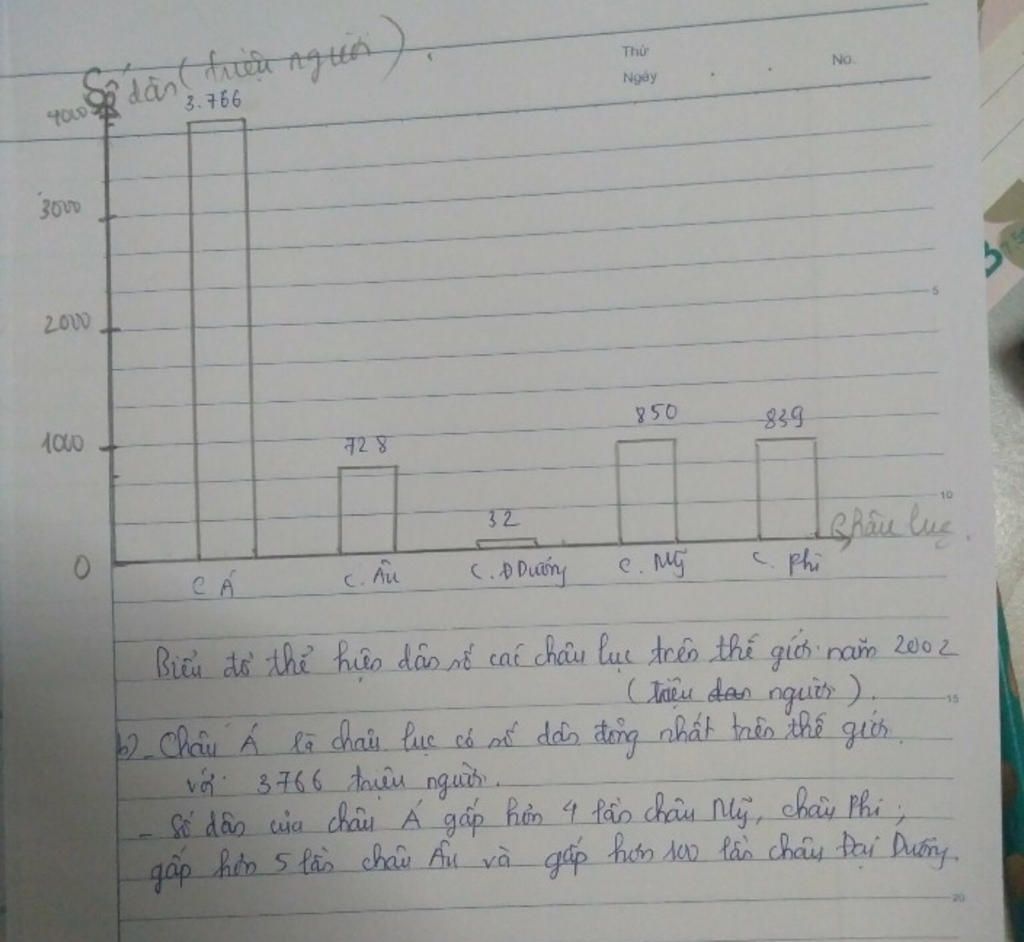 Số dân (triệu người).
Thứ
Ngày
No.
4000
3.766
3000
2000
1000
0
728
32
850
839
Châu lục
C Á
C. Âu
C. Đ Dương
C. Mỹ
C. Phi
5
10
Biểu đồ thể hiện dân số các châu lục trên thế giới năm 2002
(triệu người).
15
b)_ Châu Á là châu lục có số dân đông nhất trên thế giới
với 3766 triệu người.
- Số dân của châu Á gấp hơn 4 lần châu Mỹ, châu Phi;
gấp hơn 5 lần châu Âu và gấp hơn 100 lần châu Đại Dương.
20